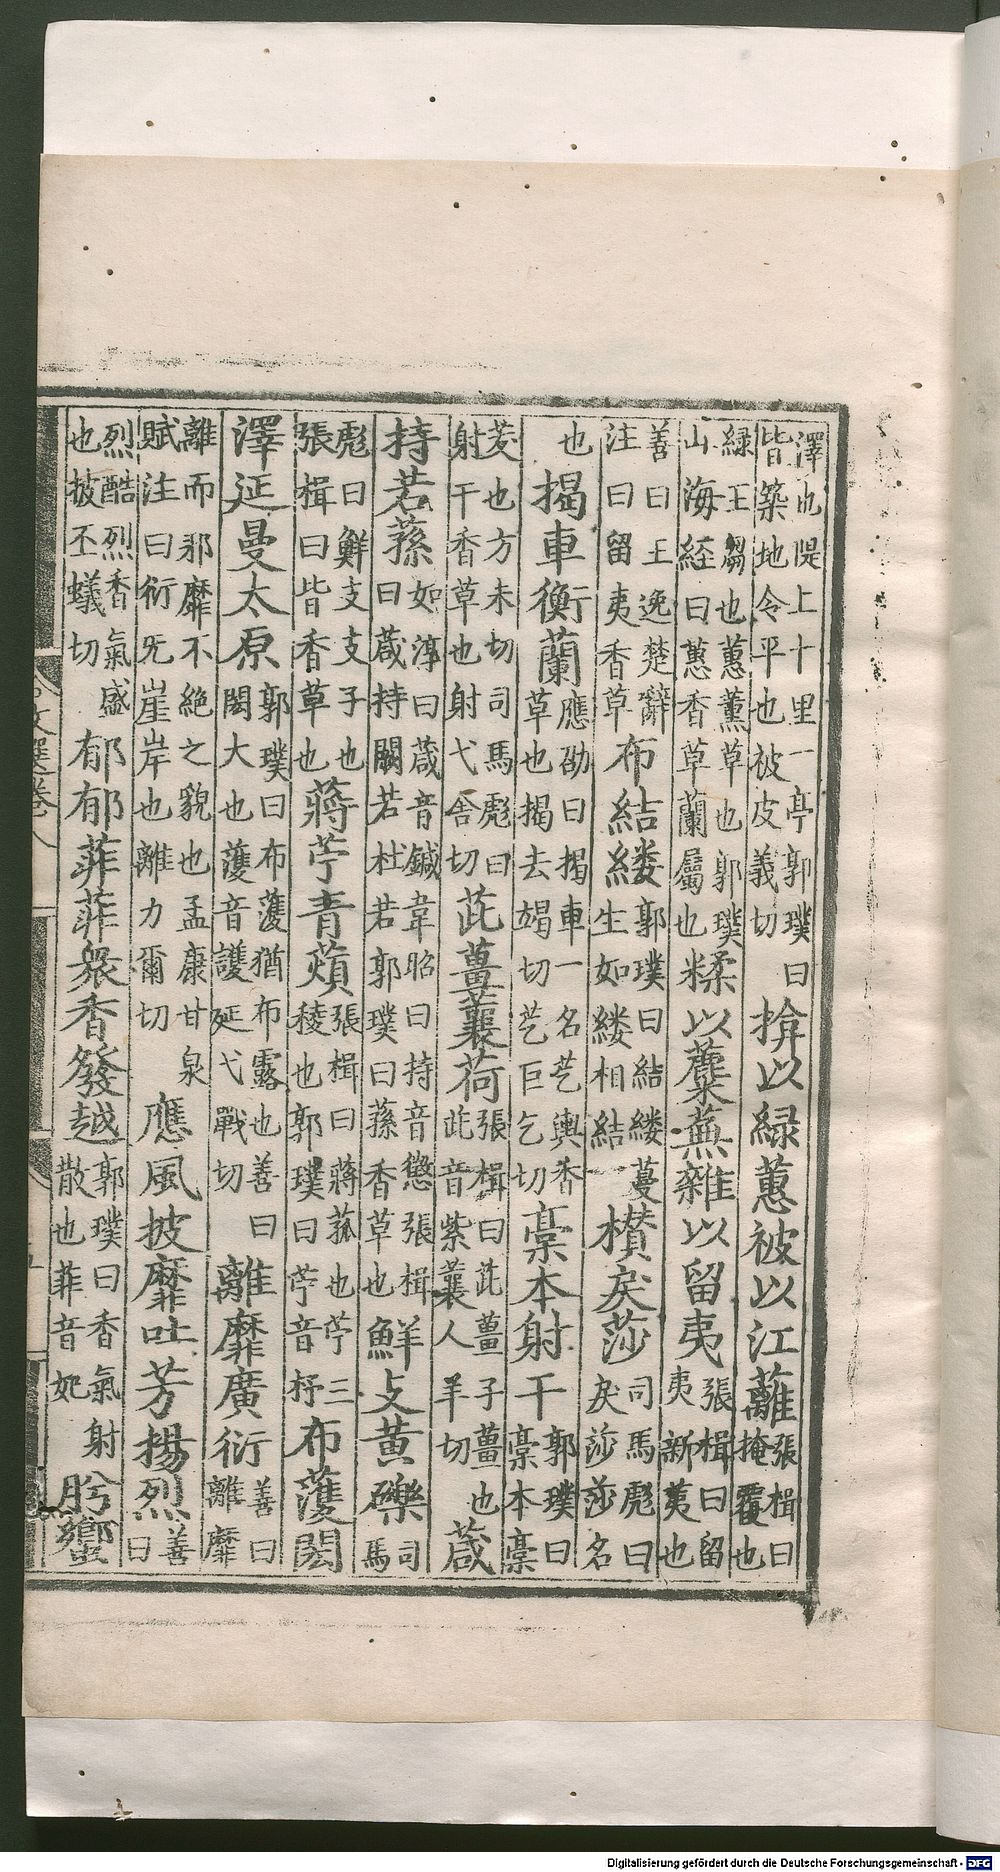 澤也隄上十里一亭郭璞曰皆築地令平也被皮義切揜以緑蕙被以江蘺張楫曰掩覆也
緑王芻也蕙薰草也郭璞山海經曰蕙香草蘭屬也糅以蘪蕪雜以留夷張楫曰留夷新夷也
善曰王逸楚辭注曰留夷香草布結縷郭璞曰結縷蔓生如縷相結欑戾莎司馬彪曰戾莎莎名
也揭車衡蘭應劭曰揭車一名芞輿香草也揭去竭切芞巨乞切槀本射干郭璞曰槀本槀
茇也方末切司馬彪曰射干香草也射弋舍切茈薑蘘荷張楫曰茈薑子薑也茈音紫蘘人羊切葴
持若蓀如淳曰葴音鍼韋昭曰持音懲張楫曰葴持闕若杜若郭璞曰蓀香草也鮮支黄礫司馬
彪曰鮮支支子也張楫曰皆香草也蔣苧青薠張楫曰蔣菰也苧三稜也郭璞曰苧音杼布濩閎
澤延曼太原郭璞曰布濩猶布露也善曰閎大也濩音護延弋戰切離靡廣衍善曰離靡
離而邪靡不絶之貌也孟康甘泉賦注曰衍旡崖岸也離力爾切應風披靡吐芳揚烈善曰
烈酷烈香氣盛也披丕蟻切郁郁菲菲衆香發越郭璞曰香氣射散也菲音妃肸蠁
文選卷八
Digitalisierung gefördert durch die Deutsche Forschungsgemeinschaft - DFG